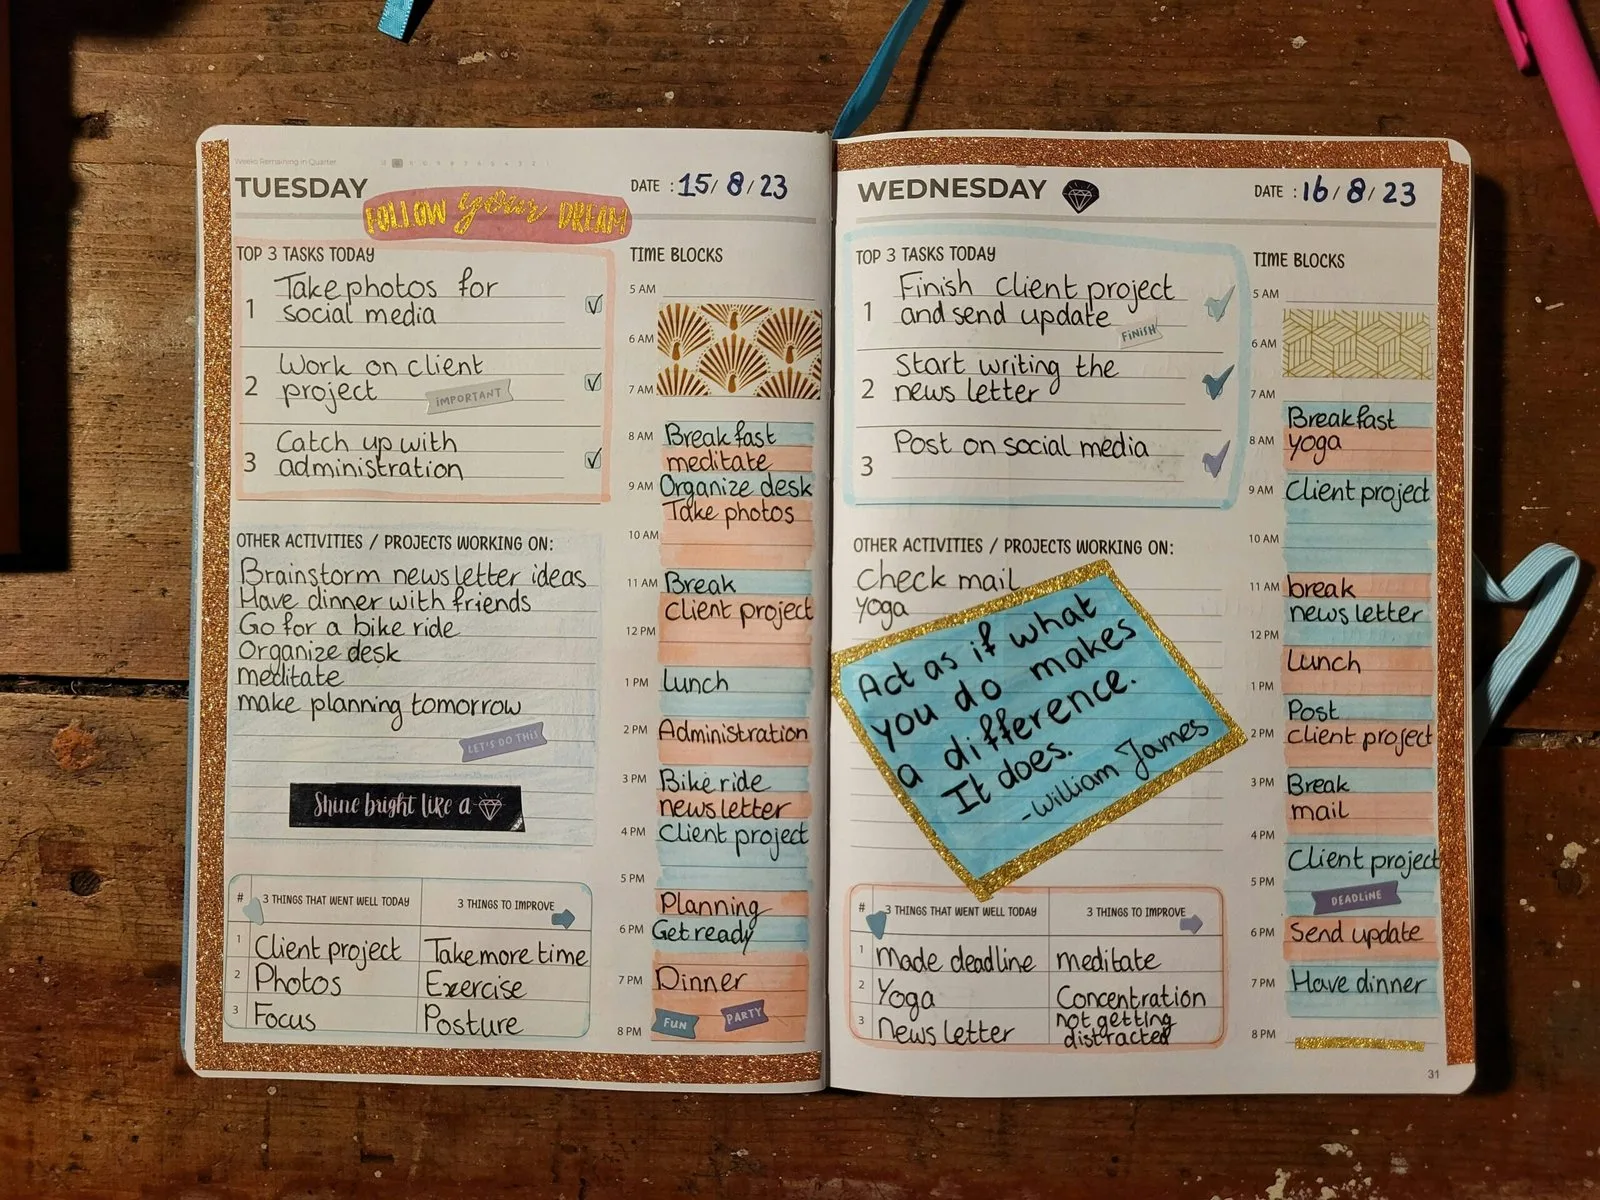 Weeks Remaining in Quarter
TUESDAY
FOLLOW your DREAM
DATE : 15/ 8/ 23
TOP 3 TASKS TODAY
1 Take photos for
social media
2 Work on client
project
IMPORTANT
3 Catch up with
administration
OTHER ACTIVITIES / PROJECTS WORKING ON:
Brainstorm news letter ideas
Have dinner with friends
Go for a bike ride
Organize desk
meditate
make planning tomorrow
LET'S DO THIS
Shine bright like a
# 3 THINGS THAT WENT WELL TODAY 3 THINGS TO IMPROVE
1 Client project Take more time
2 Photos Exercise
3 Focus Posture
TIME BLOCKS
5 AM
6 AM
7 AM
8 AM Breakfast
meditate
9 AM Organize desk
Take photos
10 AM
11 AM Break
Client project
12 PM
1 PM Lunch
2 PM Administration
3 PM Bike ride
news letter
4 PM Client project
5 PM
Planning
6 PM Get ready
7 PM Dinner
FUN PARTY
8 PM
WEDNESDAY
DATE : 16/ 8/ 23
TOP 3 TASKS TODAY
1 Finish client project
and send update
FINISH
2 Start writing the
news letter
3 Post on social media
OTHER ACTIVITIES / PROJECTS WORKING ON:
Check mail
yoga
Act as if what
you do makes
a difference.
It does.
-William James
# 3 THINGS THAT WENT WELL TODAY 3 THINGS TO IMPROVE
1 made deadline meditate
2 Yoga Concentration
3 News letter not getting
distracted
TIME BLOCKS
5 AM
6 AM
7 AM
Breakfast
8 AM yoga
9 AM Client project
10 AM
11 AM break
news letter
12 PM
Lunch
1 PM
Post
2 PM client project
3 PM Break
mail
4 PM
Client project
5 PM
DEADLINE
6 PM Send update
7 PM Have dinner
8 PM
31